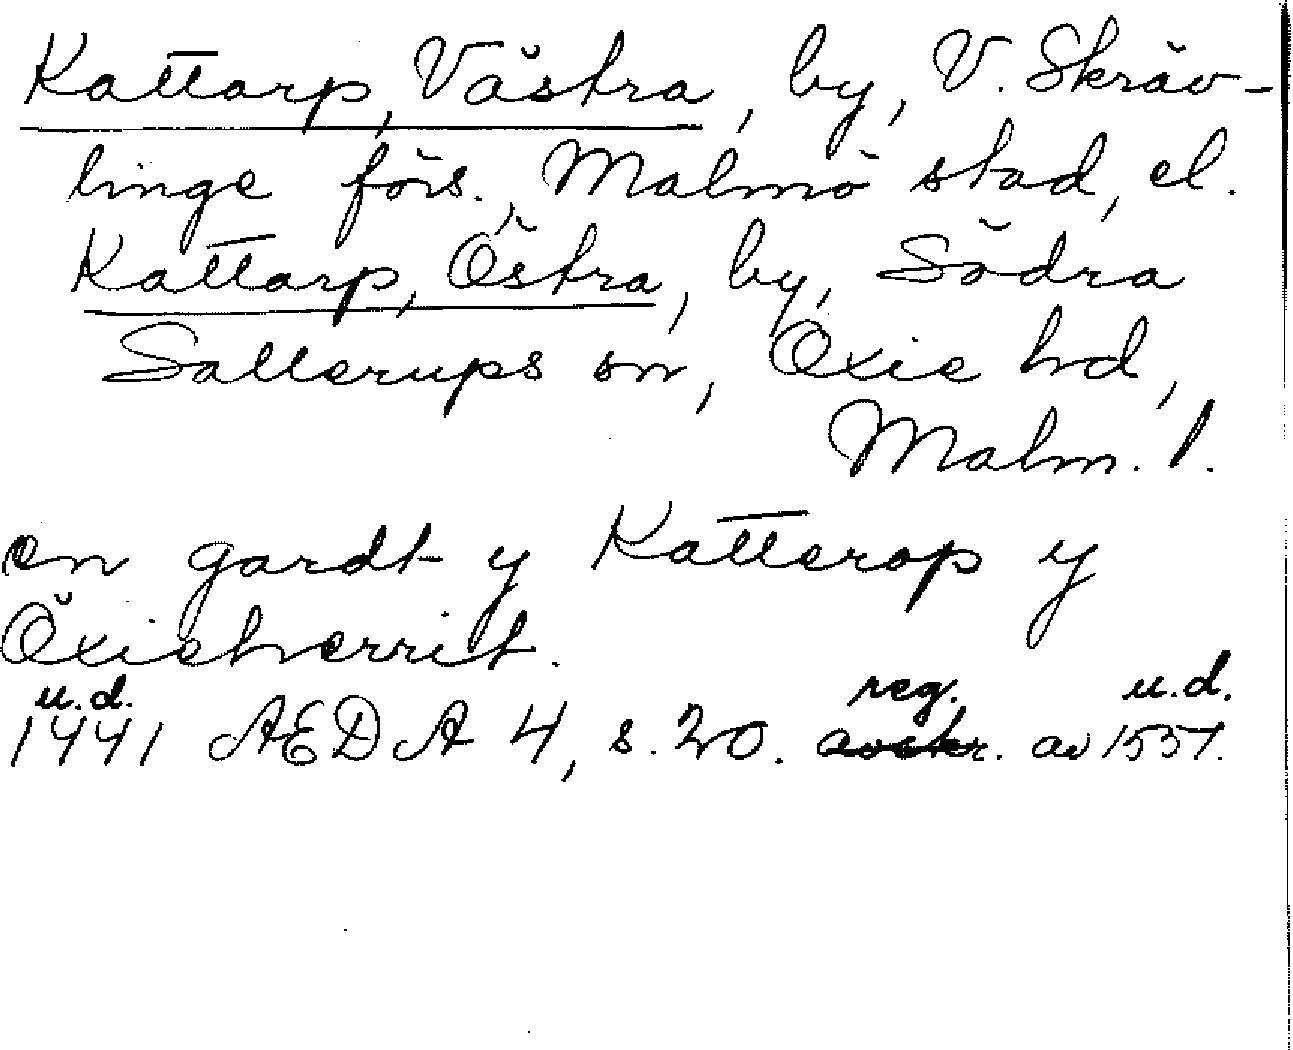 Kattarp, Västra, by, V. Skräv-
linge förs., Malmö stad, el.
Kattarp, Östra, by, Södra
Sallerups sn, Oxie hd,
Malm. l.
en gardt y Katterop y
Öxieherrit.
u.d. reg. u.d.
1441 AEDA 4, s. 20. avskr. av 1557.